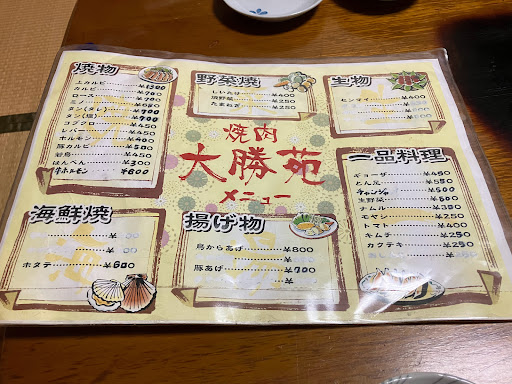 焼物
上カルビ ¥1300
カルビ ¥700
ロース ¥700
ミノ ¥650
タン(タレ) ¥700
タン(塩) ¥700
コブクロ ¥450
レバー ¥450
ホルモン ¥400
豚カルビ ¥500
若鳥 ¥450
はんぺん ¥300
牛ホルモン ¥800
野菜焼
しいたけ ¥400
焼野菜 ¥250
たまねぎ ¥250
生物
センマイ ¥400
¥
焼肉
大勝苑
メニュー
一品料理
ギョーザ ¥450
とん足 ¥550
チャンジャ ¥500
生野菜 ¥500
ナムル ¥350
モヤシ ¥250
トマト ¥400
キムチ ¥250
カクテキ ¥250
海鮮焼
¥
¥
ホタテ ¥600
揚げ物
鳥からあげ ¥800
¥
豚あげ ¥700
¥